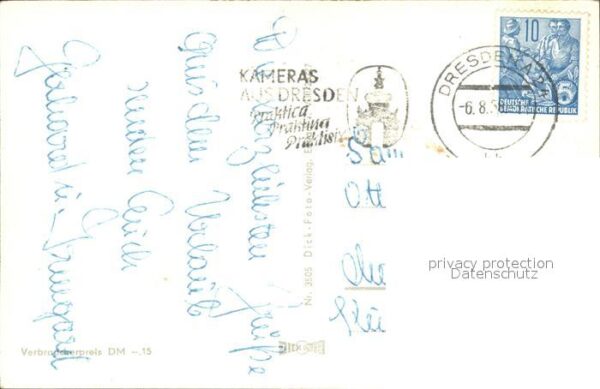 Die herzlichsten Grüße
aus dem Urlaub
senden Euch
Gerhard u. Irmgard
KAMERAS
AUS DRESDEN
Praktica
Praktina
DRESDEN A
-6.8.5
10
DEUTSCHE
DEMOKRATISCHE REPUBLIK
5
Nr. 3505 Dick-Foto-Verlag,
Fam
Ott
privacy protection
Datenschutz
Verbraucherpreis DM -.15